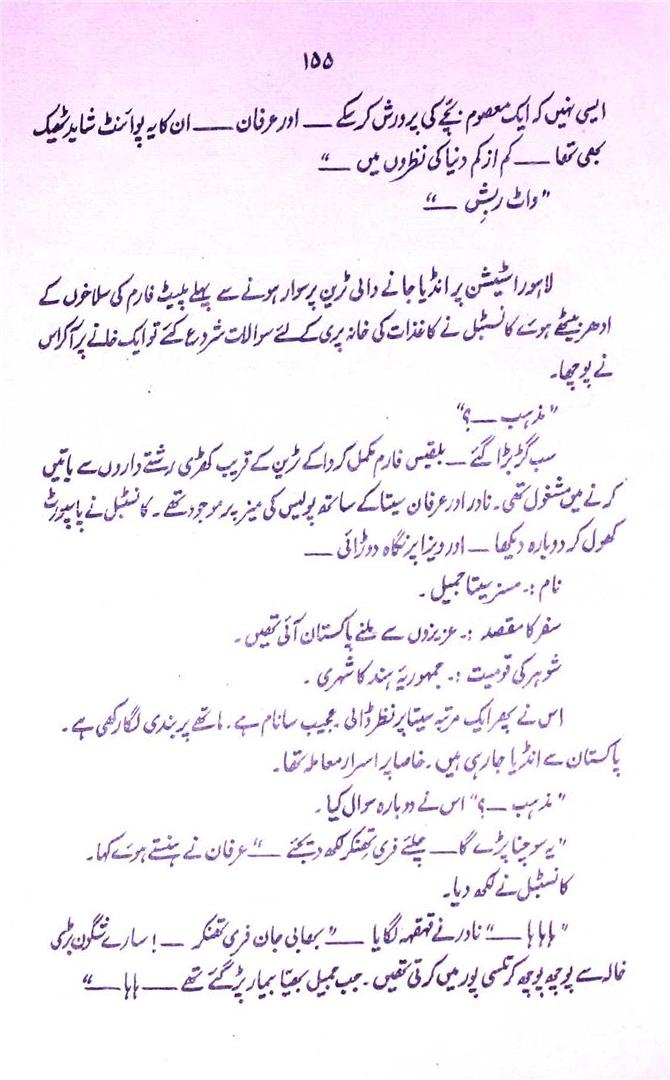 ۱۵۵
ایسی نہیں کہ ایک معصوم بچّے کی پرورش کر سکے — اور عرفان — ان کا یہ پوائنٹ شاید ٹھیک
بھی تھا — کم از کم دنیا کی نظروں میں —“
”واٹ ربش —“
لاہور اسٹیشن پر انڈیا جانے والی ٹرین پر سوار ہونے سے پہلے پلیٹ فارم کی سلاخوں کے
ادھر بیٹھے ہوئے کانسٹبل نے کاغذات کی خانہ پری کے لئے سوالات شروع کئے تو ایک خانے پر آکر اس
نے پوچھا۔
”مذہب —؟“
سب گڑبڑا گئے — بلقیس فارم مکمل کروا کے ٹرین کے قریب کھڑی رشتے داروں سے باتیں
کرنے میں مشغول تھی۔ نادر اور عرفان سیتا کے ساتھ پولیس کی میز پر موجود تھے۔ کانسٹبل نے پاسپورٹ
کھول کر دوبارہ دیکھا — اور ویزا پر نگاہ دوڑائی —
نام :۔ مسز سیتا جمیل۔
سفر کا مقصد :۔ عزیزوں سے ملنے پاکستان آئی تھیں۔
شوہر کی قومیت :۔ جمہوریۂ ہند کا شہری۔
اس نے پھر ایک مرتبہ سیتا پر نظر ڈالی۔ عجیب سا نام ہے۔ ماتھے پر بندی لگا رکھی ہے۔
پاکستان سے انڈیا جا رہی ہیں۔ خاصا پر اسرار معاملہ تھا۔
”مذہب —؟“ اس نے دوبارہ سوال کیا۔
”یہ سوچنا پڑے گا — چلئے فری تھنکر لکھ دیجئے —“ عرفان نے ہنستے ہوئے کہا۔
کانسٹبل نے لکھ دیا۔
”ہا ہا ہا —“ نادر نے قہقہہ لگایا —”بھابی جان فری تھنکر —! سارے شگون بڑی
خالہ سے پوچھ پوچھ کر تلسی پور میں کرتی تھیں۔ جب جمیل بھیّا بیمار پڑ گئے تھے — ہا ہا —“